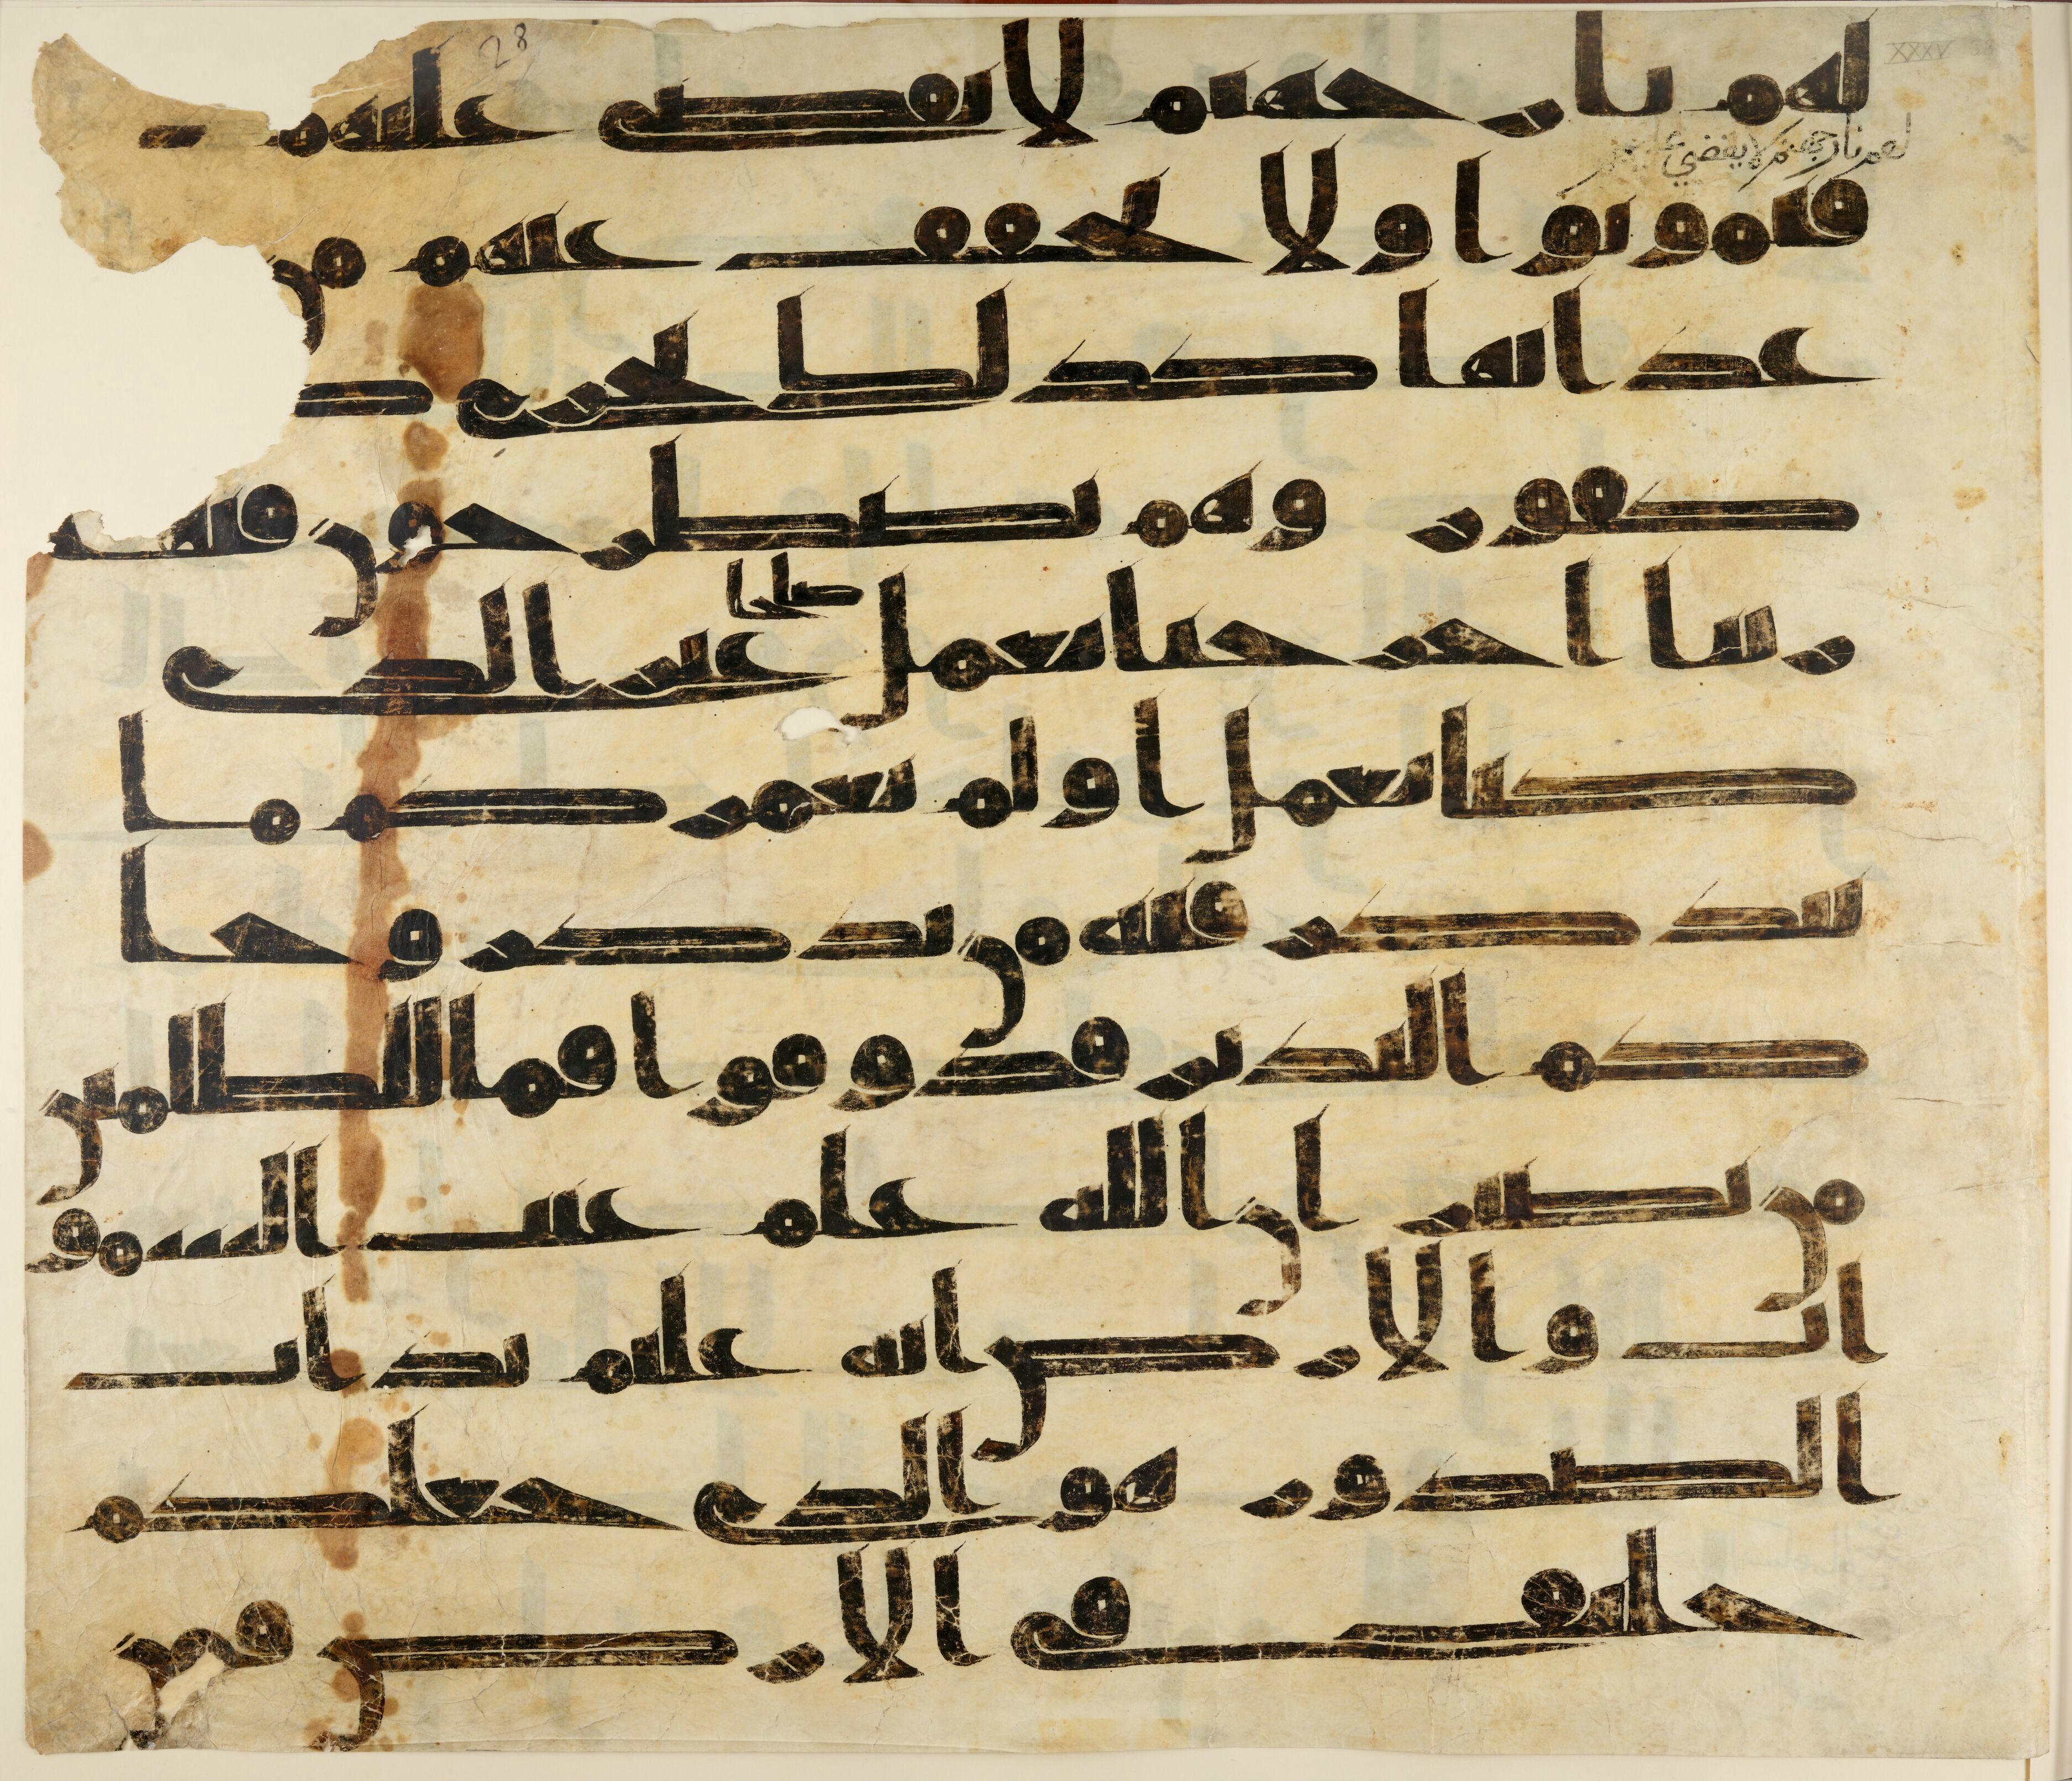 28
XXXV
لهم نار جهنم لا يقضى عليهم
لهم نار جهنم لا يقضي
فيموتوا ولا يخفف عليهم من
عذابها كذلك نجزى
كفور وهم يصطرخون فيها
صلحا
ربنا اخرجنا نعمل غير الذى
كنا نعمل اولم نعمركم ما
يتذكر فيه من تذكر وجا
كم النذير فذوقوا فما للظلمين
من نصير ان الله علم غيب السمو
ات والارض انه عليم بذات
الصدور هو الذى جعلكم
خلئف فى الارض فمن